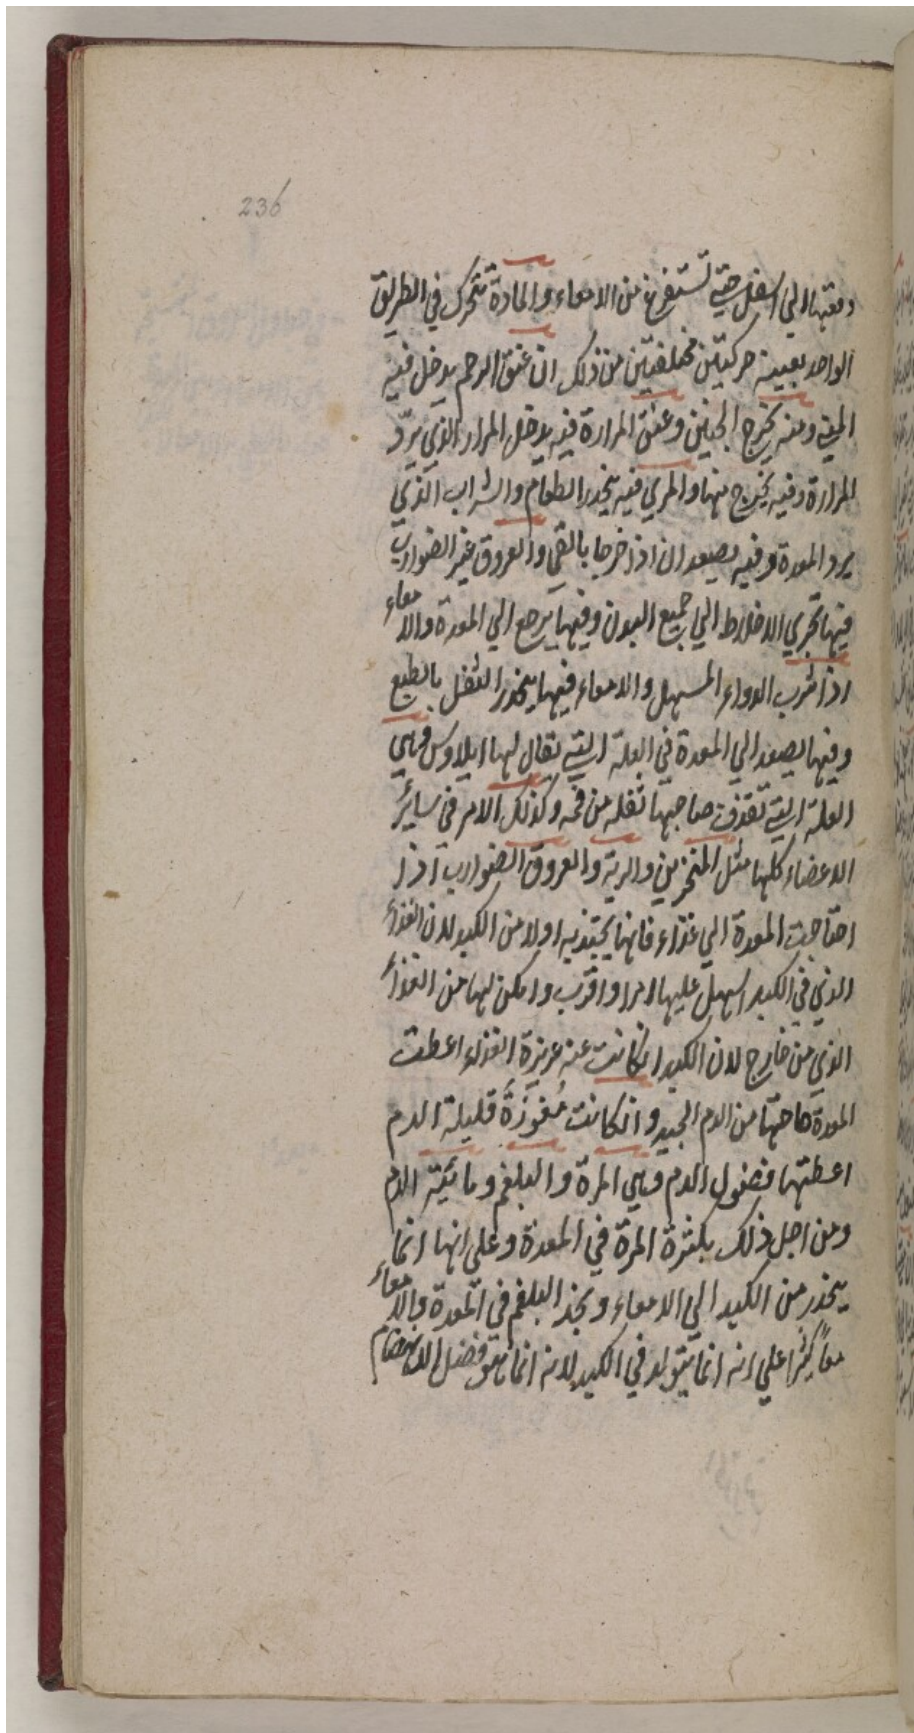 236
دفعتها الي اسفل حتي تستفرغ من الامعاء والمادة تتحرك في الطريق
الواحد بعينه حركتين مختلفتين من ذلك ان عنق الرحم يدخل فيه
المني ومنه يخرج الجنين وعنق المرارة فيه يدخل المرار الذي يرد
المرارة وفيه يخرج منها والمري فيه ينحدر الطعام والشراب الذي
يرد المعدة وفيه يصعدان اذا خرجا بالقي والعروق غير الضوارب
فيها تجري الاخلاط الي جميع البدن وفيها يرجع الي المعدة والامعاء
اذا شرب الدواء المسهل والامعاء فيها ينحدر الثفل بالطبع
وفيها يصعد الي المعدة في العلة التي يقال لها ايلاوس وهي
العلة التي تقذف صاحبها ثفله من فمه وكذلك الامر في سائر
الاعضاء كلها مثل المنخرين والرية والعروق الضوارب اذا
احتاجت المعدة الي غذاء فانها يجتذبه اولا من الكبد لان الغذاء
الذي في الكبد اسهل عليها امرا واقرب وامكن لها من الغذاء
الذي من خارج لان الكبد ان كانت عنه غزيرة الغذاء اعطت
المعدة حاجتها من الدم الجيد وان كانت معوزة قليلة الدم
اعطتها فضول الدم وهي المرة والبلغم ومائية الدم
ومن اجل ذلك يكثرة المرة في المعدة وعلي انها انما
ينحدر من الكبد الي الامعاء ونجد البلغم في المعدة والامعاء
معا كثيرا علي انه انما يتولد في الكبد لانه انما هو فضل الانهضام